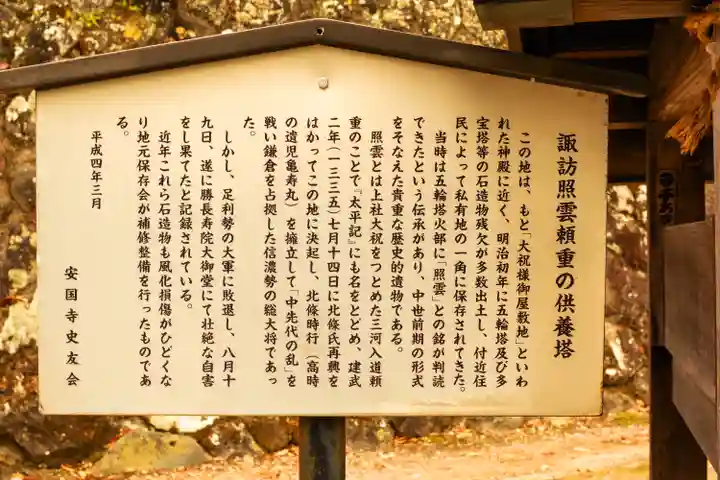 諏訪照雲頼重の供養塔
この地は、もと「大祝様御屋敷地」といわ
れた神殿に近く、明治初年に五輪塔及び多
宝塔等の石造物残欠が多数出土し、付近住
民によって私有地の一角に保存されてきた。
当時は五輪塔火部に「照雲」との銘が判読
できたという伝承があり、中世前期の形式
をそなえた貴重な歴史的遺物である。
照雲とは上社大祝をつとめた三河入道頼
重のことで『太平記』にも名をとどめ、建武
二年(一三三五)七月十四日に北條氏再興を
はかってこの地に決起し、北條時行(高時
の遺児亀寿丸)を擁立して「中先代の乱」を
戦い鎌倉を占拠した信濃勢の総大将であっ
た。
しかし、足利勢の大軍に敗退し、八月十
九日、遂に勝長寿院大御堂にて壮絶な自害
をし果てたと記録されている。
近年これら石造物も風化損傷がひどくな
り地元保存会が補修整備を行ったものであ
る。
平成四年三月
安国寺史友会